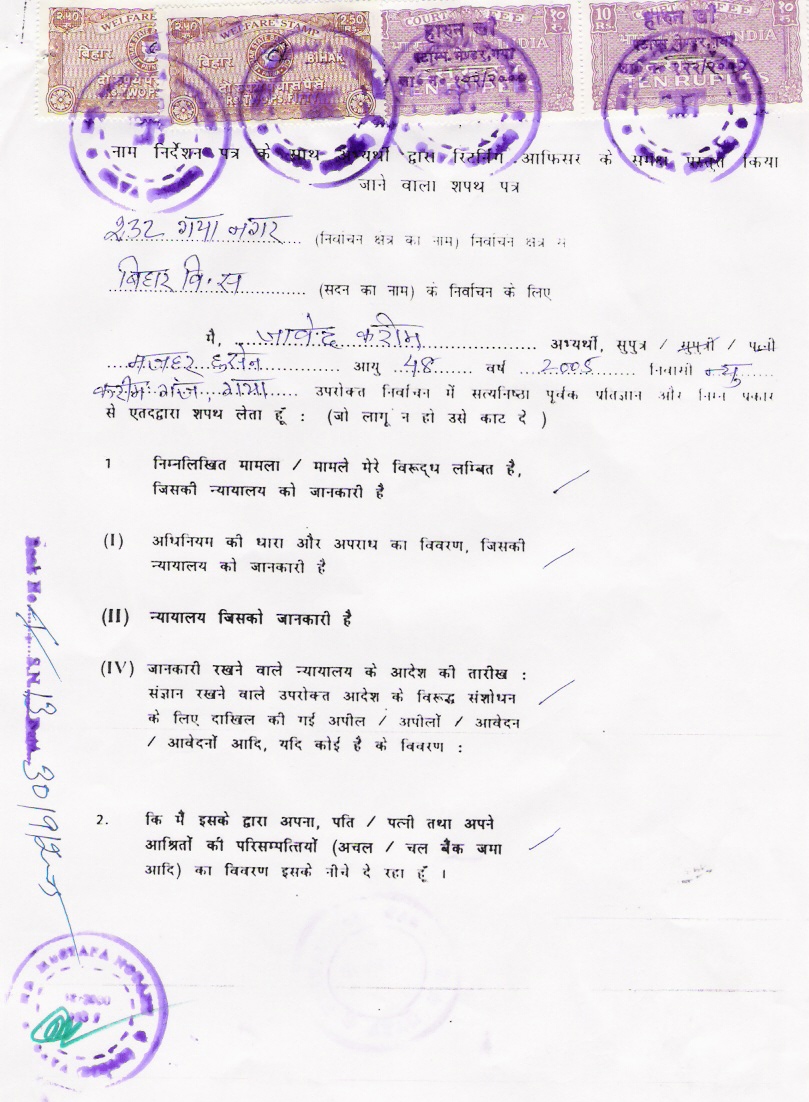 २.५० WELFARE STAMP
बिहार
WELFARE STAMP 2.50
बिहार BIHAR
COURT FEE १०
INDIA
TEN RUPEES
10 COURT FEE १०
RS. रु.
INDIA
TEN RUPEES
हारुन खाँ
स्टाम्प भेण्डर, गया
नाम निर्देशन पत्र के साथ अभ्यर्थी द्वारा रिटर्निंग आफिसर के समक्ष प्रस्तुत किया
जाने वाला शपथ पत्र
232 गया नगर (निर्वाचन क्षेत्र का नाम) निर्वाचन क्षेत्र में
बिहार वि.स (सदन का नाम) के निर्वाचन के लिए
मै, जावेद करीम अभ्यर्थी, सुपुत्र / सुपुत्री / पत्नी
मजहर हुसेन आयु 48 वर्ष 2005 निवासी न्यु
करीम गंज, गया उपरोक्त निर्वाचन में सत्यनिष्ठा पूर्वक प्रतिज्ञान और निम्न प्रकार
से एतदद्वारा शपथ लेता हूँ : (जो लागू न हो उसे काट दे )
1 निम्नलिखित मामला / मामले मेरे विरूद्ध लम्बित है,
जिसकी न्यायालय को जानकारी है
(I) अधिनियम की धारा और अपराध का विवरण, जिसकी
न्यायालय को जानकारी है
(II) न्यायालय जिसको जानकारी है
(IV) जानकारी रखने वाले न्यायालय के आदेश की तारीख :
संज्ञान रखने वाले उपरोक्त आदेश के विरूद्ध संशोधन
के लिए दाखिल की गई अपील / अपीलों / आवेदन
/ आवेदनों आदि, यदि कोई है के विवरण :
2. कि मैं इसके द्वारा अपना, पति / पत्नी तथा अपने
आश्रितों की परिसम्पत्तियों (अचल / चल बैंक जमा
आदि) का विवरण इसके नीचे दे रहा हूँ ।
S.N. 13